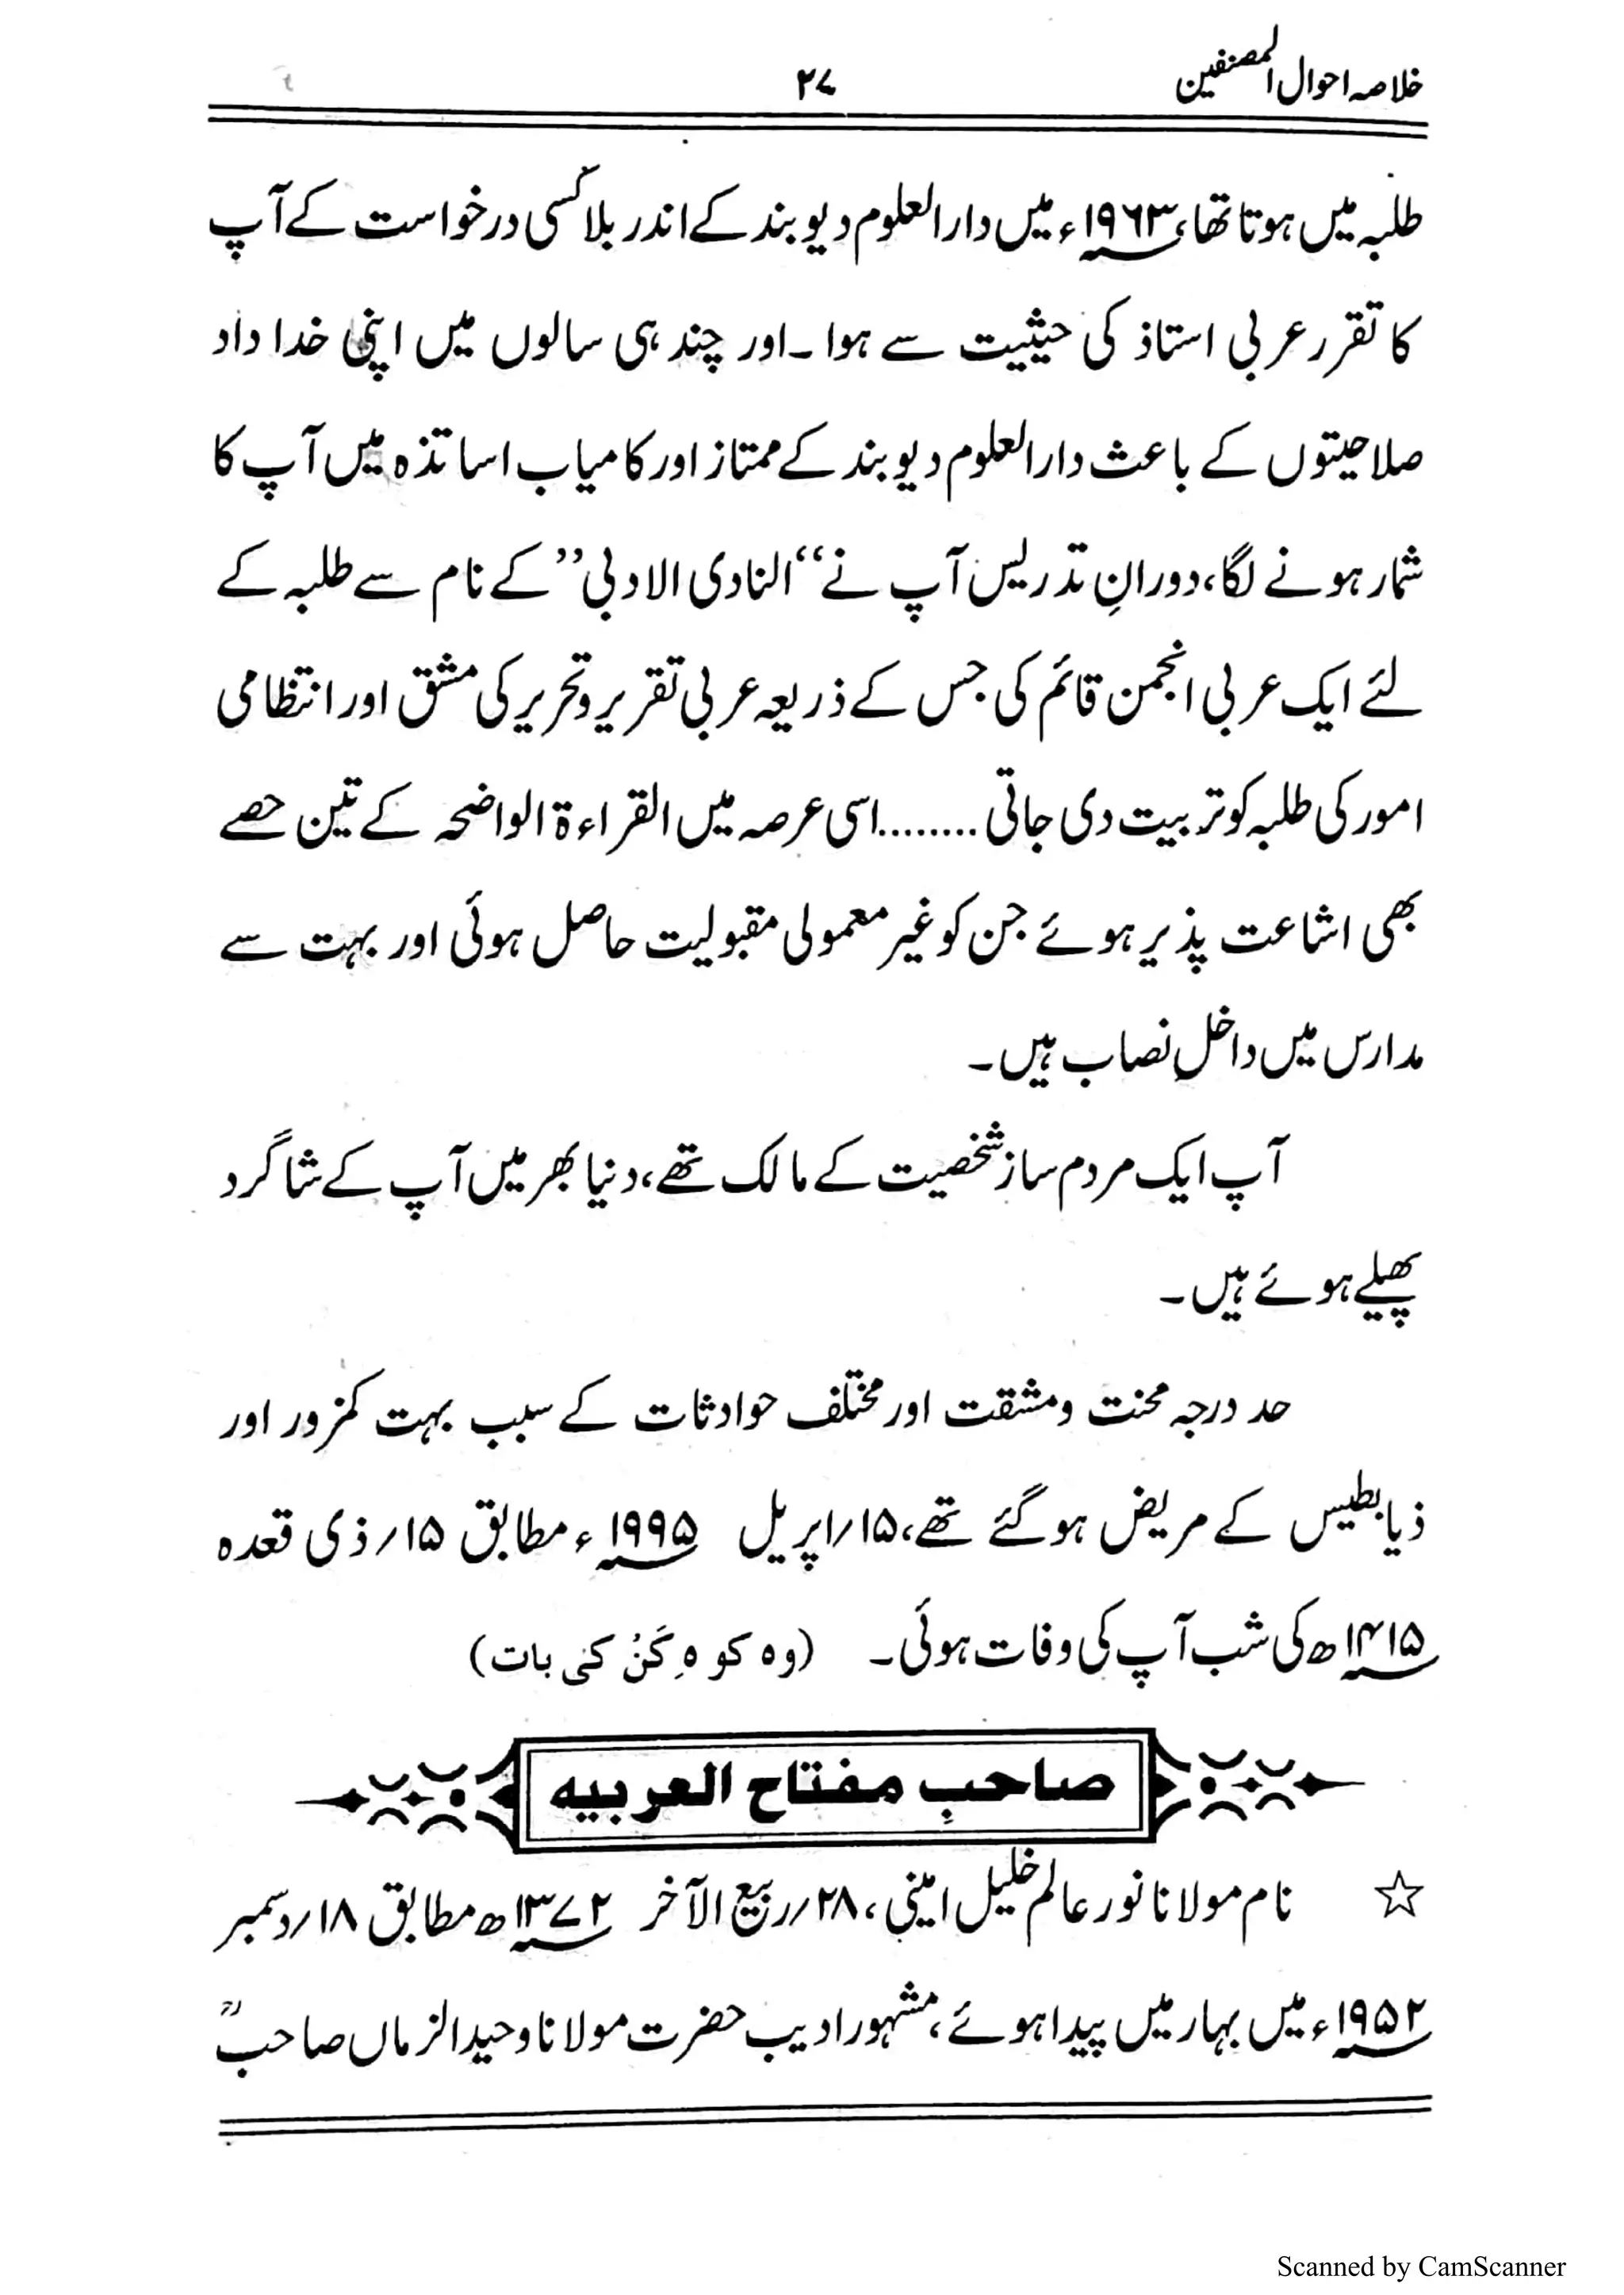 خلاصہ احوال المصنفین
۲۷
طلبہ میں ہوتا تھا، ۱۹۶۳ء میں دارالعلوم دیوبند کے اندر بلا کسی درخواست کے آپ
کا تقرر عربی استاذ کی حیثیت سے ہوا۔ اور چند ہی سالوں میں اپنی خدا داد
صلاحیتوں کے باعث دارالعلوم دیوبند کے ممتاز اور کامیاب اساتذہ میں آپ کا
شمار ہونے لگا، دورانِ تدریس آپ نے “النادی الادبی” کے نام سے طلبہ کے
لئے ایک عربی انجمن قائم کی جس کے ذریعہ عربی تقریر وتحریر کی مشق اور انتظامی
امور کی طلبہ کو تربیت دی جاتی ........ اسی عرصہ میں القراءۃ الواضحہ کے تین حصے
بھی اشاعت پذیر ہوئے جن کو غیر معمولی مقبولیت حاصل ہوئی اور بہت سے
مدارس میں داخلِ نصاب ہیں۔
آپ ایک مردم ساز شخصیت کے مالک تھے، دنیا بھر میں آپ کے شاگرد
پھیلے ہوئے ہیں۔
حد درجہ محنت ومشقت اور مختلف حوادثات کے سبب بہت کمزور اور
ذیابطیس کے مریض ہوگئے تھے، ۱۵/اپریل ۱۹۹۵ء مطابق ۱۵/ذی قعدہ
۱۴۱۵ھ کی شب آپ کی وفات ہوئی۔ (وہ کوہِ کَنْ کی بات)
صاحبِ مفتاح العربیہ
☆ نام مولانا نور عالم خلیل امینی، ۲۸/ربیع الآخر ۱۳۷۲ھ مطابق ۱۸/دسمبر
۱۹۵۲ء میں بہار میں پیدا ہوئے، مشہور ادیب حضرت مولانا وحید الزماں صاحبؒ
Scanned by CamScanner